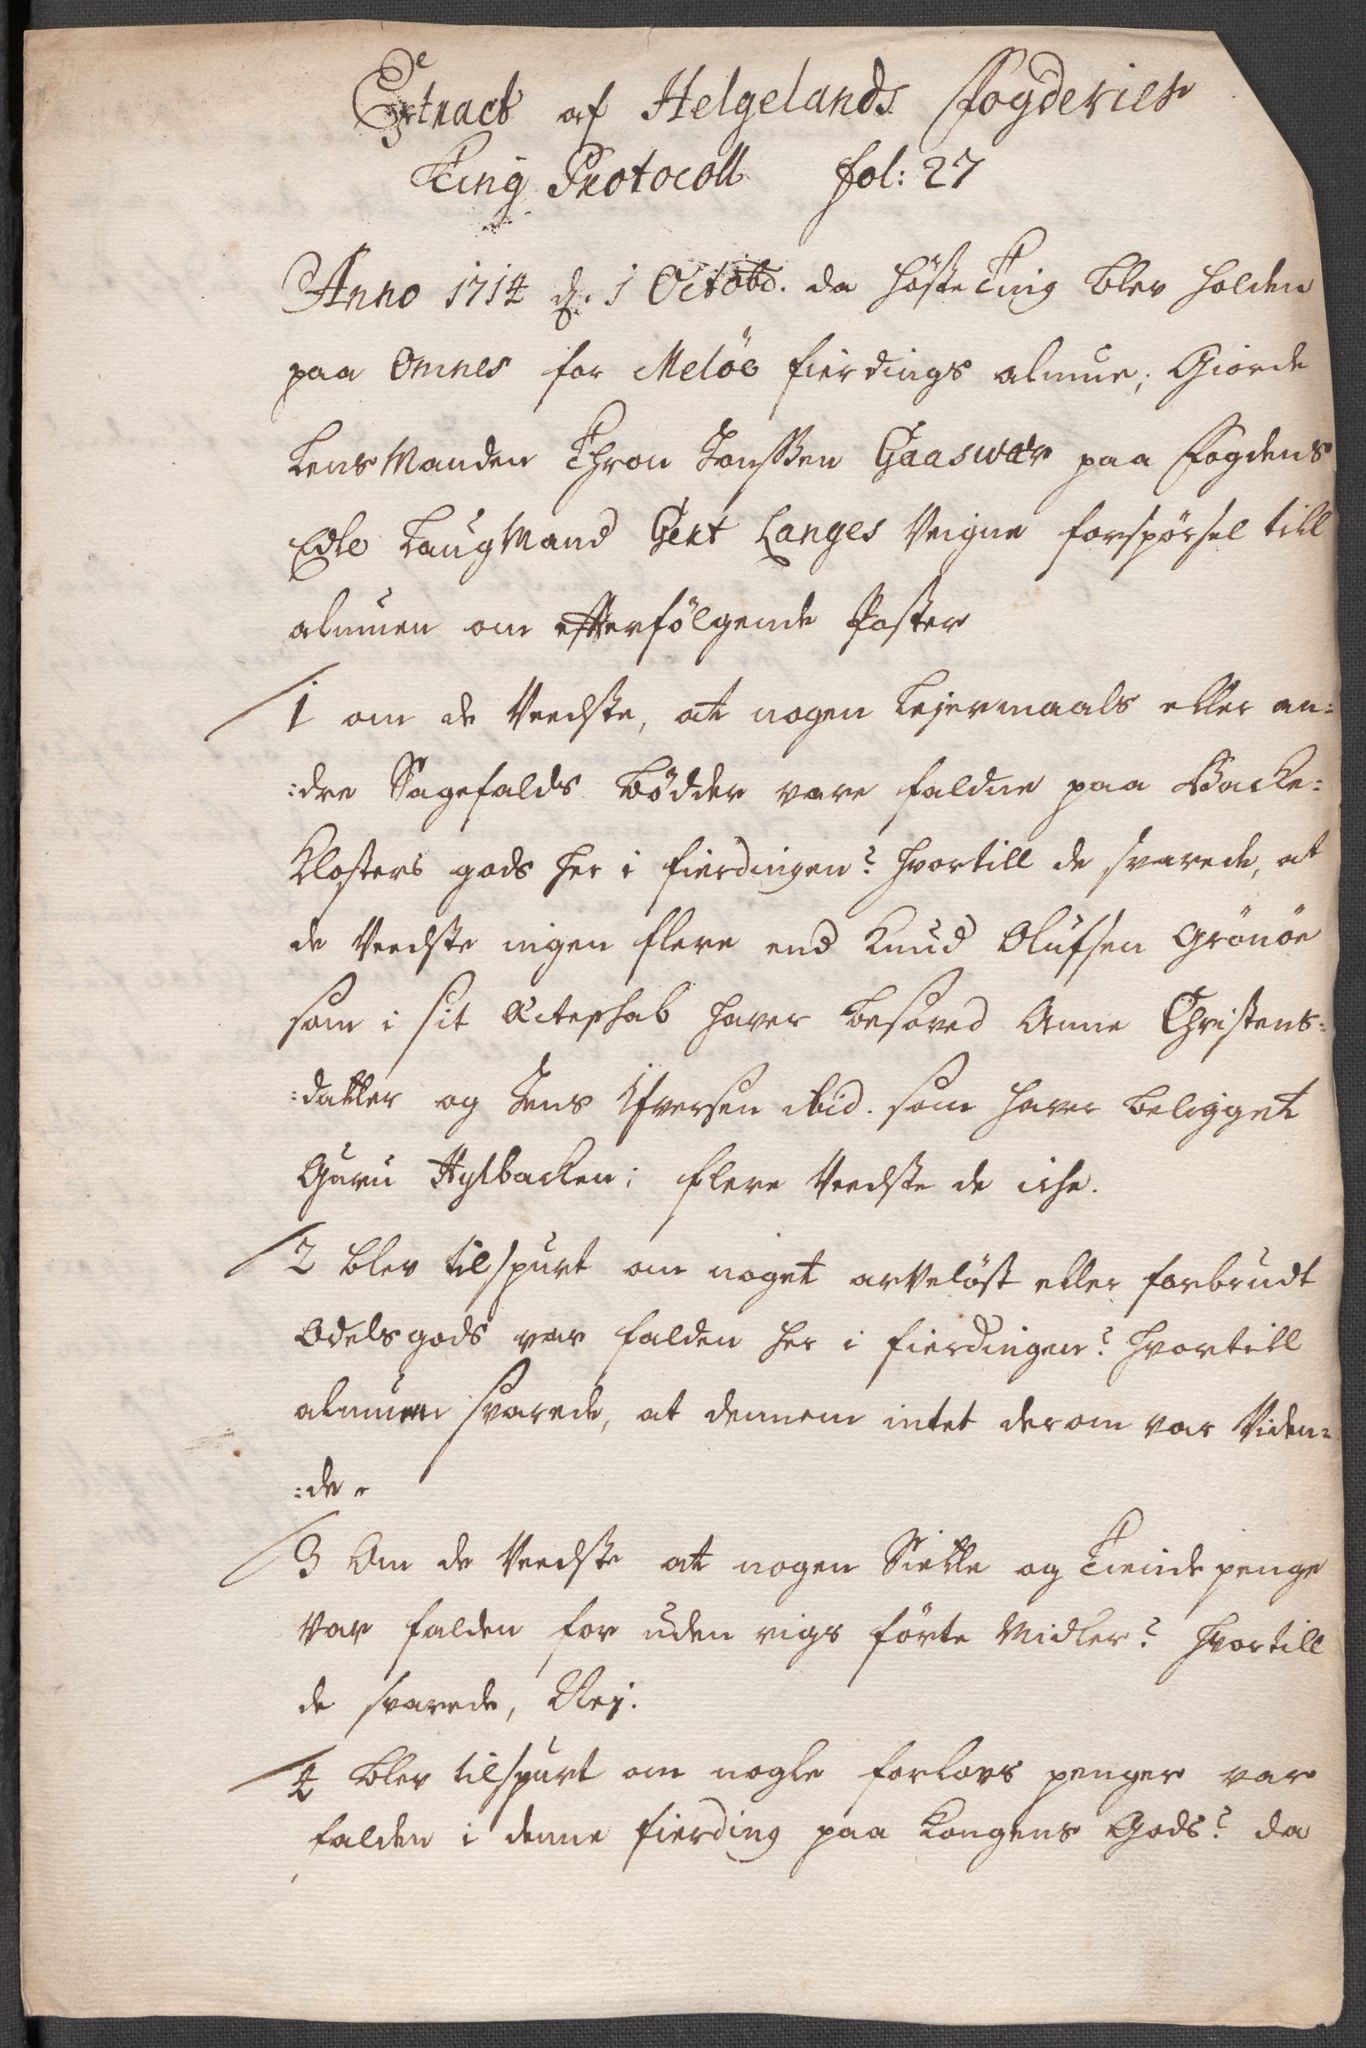 Extract af Helgelands Fogderies
Ting Protocoll fol: 27
Anno 1714 d. 1 Octobr. da höste Ting blev holden
paa Omnes for Melöe fierdings almue; Giorde
LensManden Thron Jonssen Gaaswær paa Fogdens
Edle LaugMand Gert Langes Veigne forspörsel till
almuen om efterfölgende Poster
1 om de Veedste, at nogen Lejermaals eller an=
:dre Sagefalds bödder vare faldne paa Backe=
Closters gods her i fierdingen? hvortill de svarede, at
de Veedste ingen flere end Knud Olufsen Grönöe
som i sit Ecteskab haver besöved Anne Christens=
:datter og Jens Ifversen ibid. som haver beligget
Guru Hylbacken; flere Veedste de iche.
2 blev tilspurt om noget arVelöst eller forbrudt
Odelsgods var falden her i fierdingen? hvortill
almuen svarede, at dennem intet derom var Viden=
:de.
3 Om de Veedste at nogen Siette og Tiende penge
var falden for uden rigs förte Midler? hvortill
de svarede, Nej.
4 blev tilspurt om nogle forlovs penger var
falden i denne fierding paa Kongens Gods? da